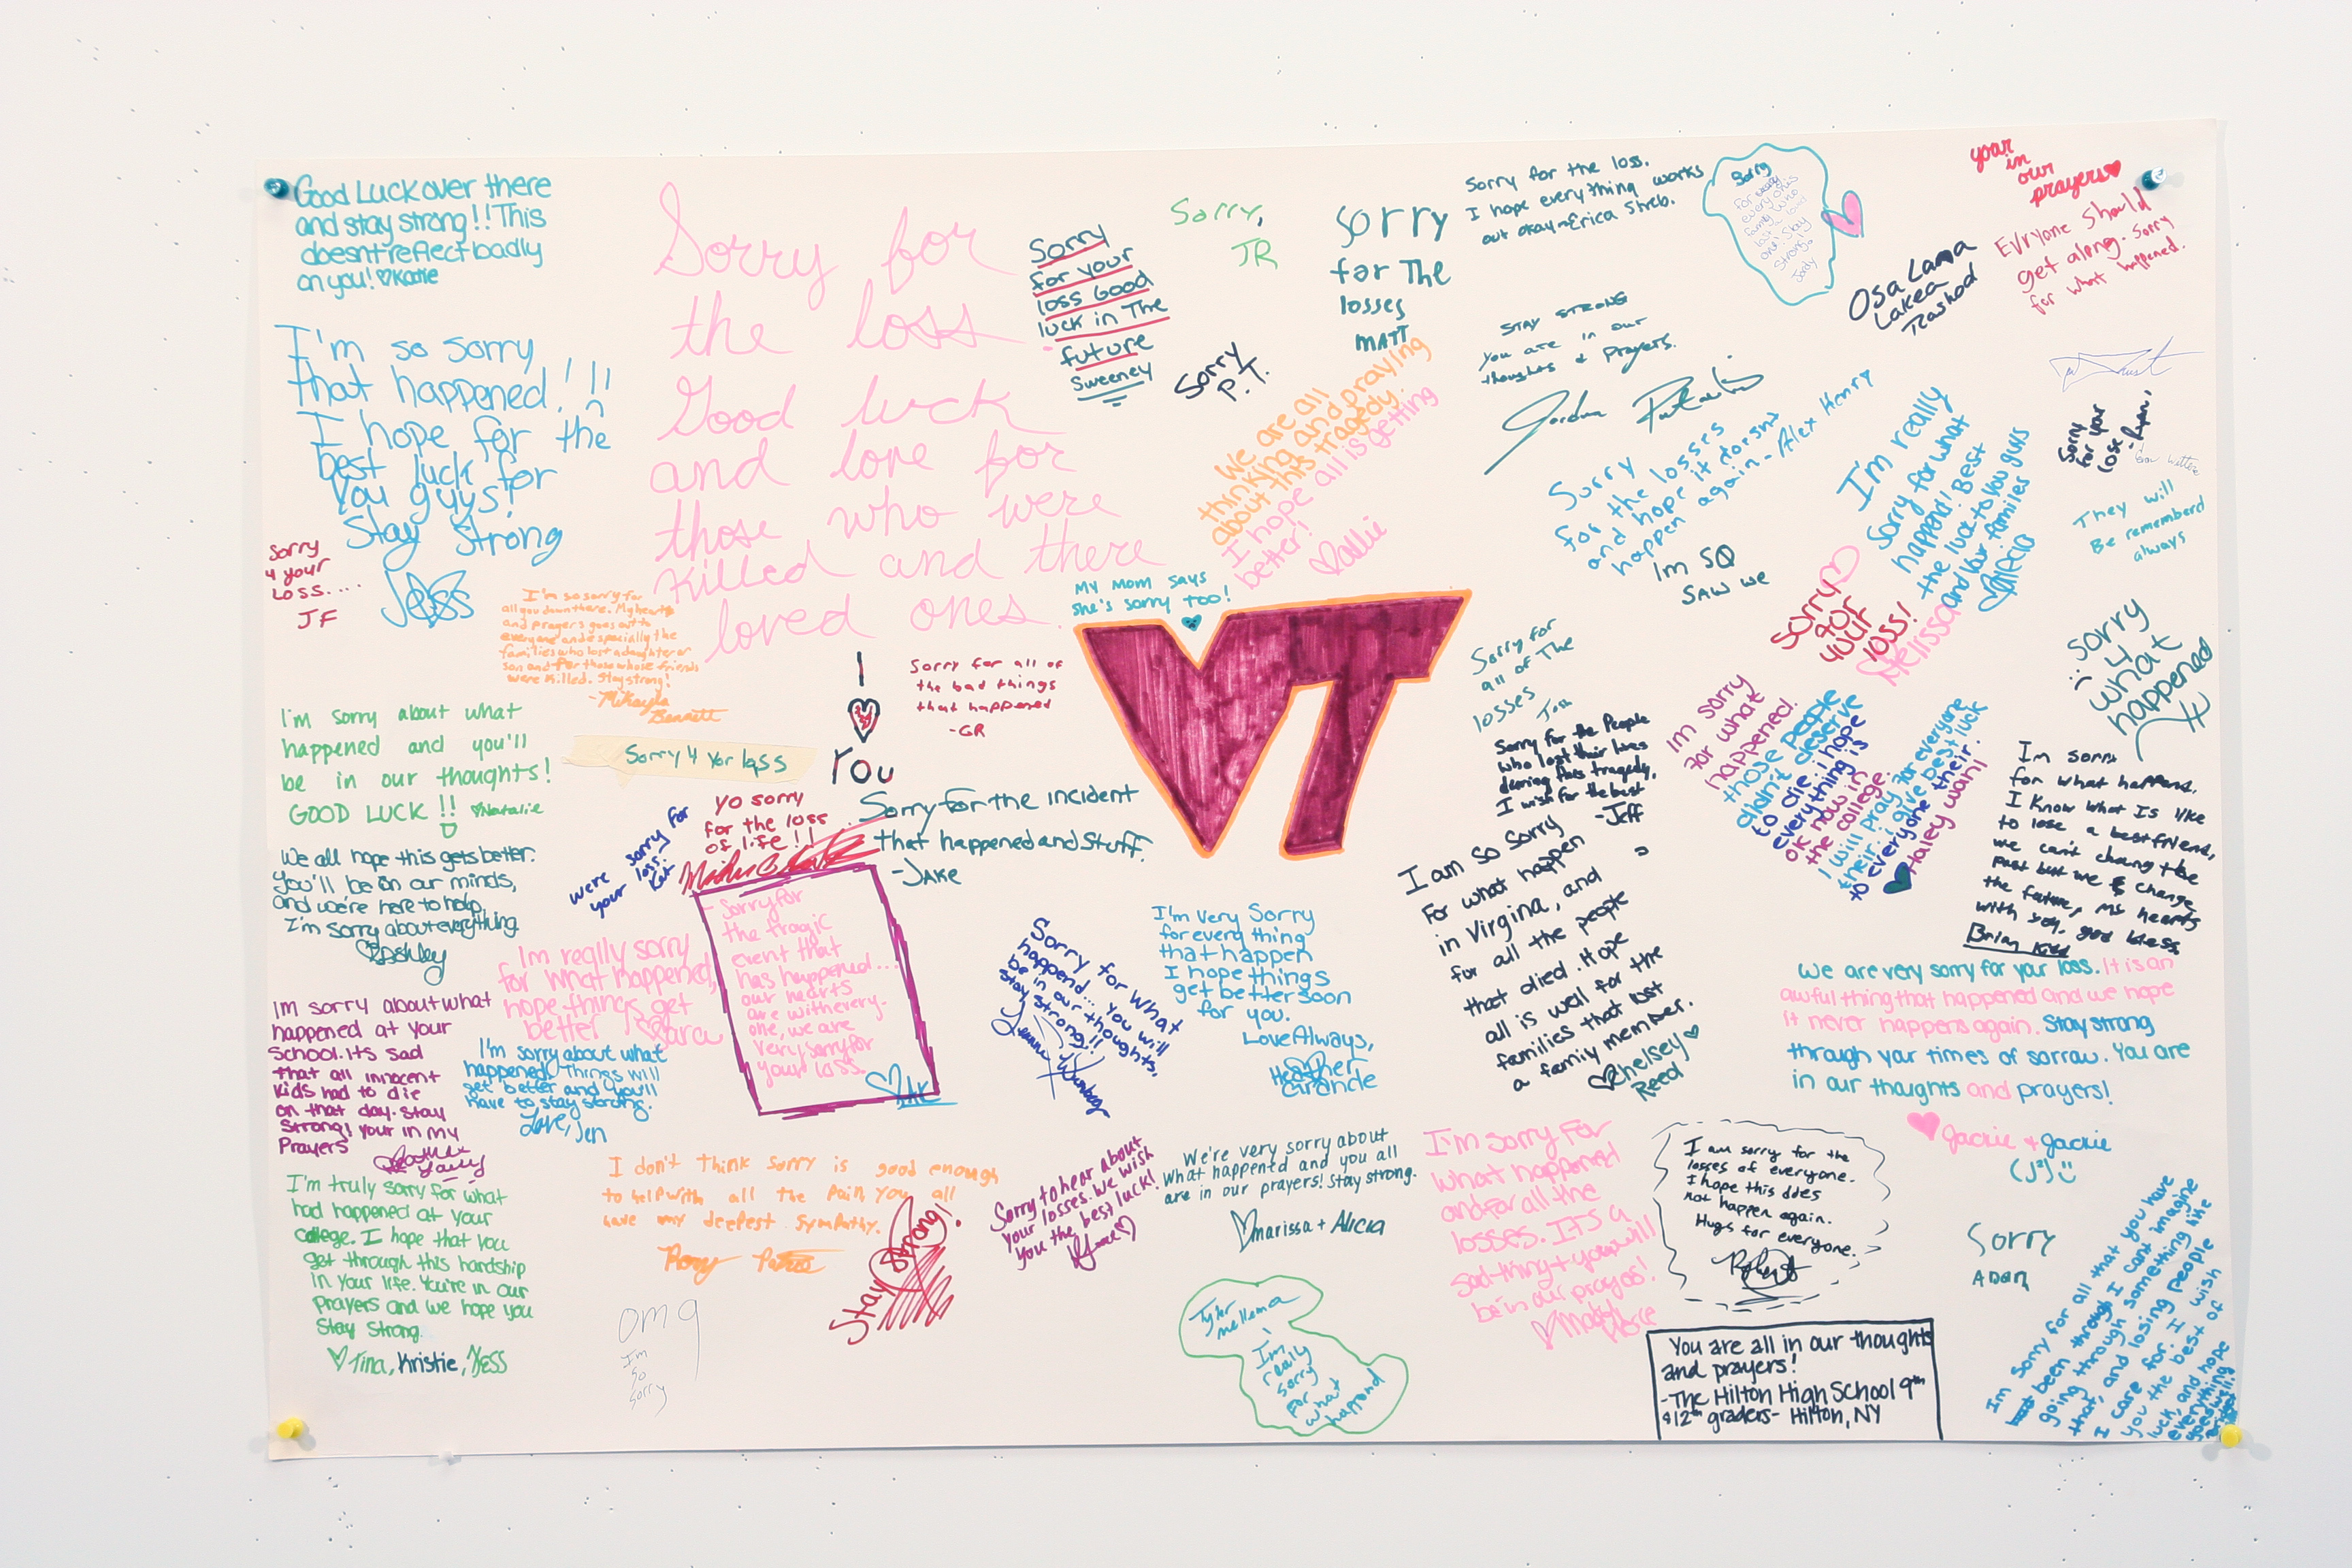 Good Luck over there
and stay strong!! This
doesn't reflect badly
on you! ♡Katie
I'm so sorry
that happened!!!
I hope for the
best luck for
You guys!
Stay Strong
Jess
Sorry
4 your
Loss....
JF
I'm so sorry for
all you down there. My heart
and prayers goes out to
everyone and especially the
families who lost a daughter or
son and for those whose friends
were killed. Stay strong!
-Mikayla
Bennett
Sorry for
the loss.
Good luck
and love for
those who were
killed and there
loved ones.
Sorry
for your
loss Good
luck in The
future
Sweeney
Sorry,
JR
Sorry
P.T.
Sorry
for The
losses
MATT
Sorry for the loss.
I hope everything works
out okay~Erica Streb.
STAY STRONG
You are in our
thoughts & Prayers.
Jordan
Sorry
for every
every one's
family who
lost a loved
one. Stay
Strong.
Jody
Osa Lama
Lakea
Rashod
your
in
our
prayers♥
Evryone should
get along. Sorry
for what happened.
Sorry
for your
loss -Ryan,
They will
Be rememberd
always
We are all
thinking and praying
about this tragedy.
I hope all is getting
better!
♡allie
Sorry
for the losses
and hope it doesnt
happen again -Alex Henry
Im SO
Saw we
I'm really
Sorry for what
happend! Best
the luck to you guys
and your families
♡Alicia
Sorry
4or
your
loss!
♡Melissa
Sorry
4
what
happened
My Mom says
she's sorry too!
VT
I
♥
You
Sorry for all of
the bad things
that happened
-GR
Sorry for
all of The
losses
Sorry for the People
who lost their lives
dering this tragedy,
I wish for the best
-Jeff
Im sorry
for what
happened!
those people
didn't deserve
to die. i hope
everything is
ok now in
the college.
I will pray for everyone
their. i give best luck
to everyone their.
♥Haley Wani
Im sorry
for what happend.
I Know what Is like
to lose a bestfriend,
we can't chang the
past but we & change
the future, my hearts
with you, god bless
Brian Kidd
I'm sorry about what
happened and you'll
be in our thoughts!
GOOD LUCK!! ♡Natalie
Sorry 4 yor loss
were sorry for
your loss.
Kat
yo sorry
for the loss
of life!!
Sorry for the incident
that happened and Stuff.
-JAKE
We all hope this gets better.
You'll be in our minds,
and we're here to help.
I'm sorry about everything
♡Ashley
Im really sorry
for what happened,
hope things get
better ♡Sara
Sorry for
the tragic
event that
has happened...
our hearts
are with every-
one, we are
very sorry for
your loss.
Sorry for what
happend... you will
be in our thoughts,
stay strong!!
I'm very Sorry
for every thing
that happen
I hope things
get better soon
for you.
Love Always,
Heather
Girancle
I am so sorry
For what happen
in Virgina, and
for all the people
that died. Hope
all is well for the
families that lost
a family member.
♡Chelsey♡
Reed
We are very sorry for your loss. It is an
awful thing that happened and we hope
it never happens again. Stay strong
through your times of sorrow. You are
in our thoughts and prayers!
♥Jackie + Jackie
(J²)
Im sorry about what
happened at your
school. its sad
that all innocent
kids had to die
on that day. Stay
Strong! your in my
Prayers
I'm sorry about what
happened! Things will
get better and you'll
have to stay strong.
Love, Jen
I'm truly sorry for what
had happened at your
college. I hope that you
get through this hardship
in your life. You're in our
Prayers and we hope you
Stay Strong.
♡Tina, Kristie, Jess
I don't think sorry is good enough
to help with all the Pain, You all
have my deepest sympathy.
Stay Strong!
omg
Im
So
Sorry
Sorry to hear about
your losses. we wish
you the best luck!
We're very sorry about
what happened and you all
are in our prayers! Stay strong.
♡Marissa + Alicia
Tyler
mellema
I'm
really
sorry
for
what
happend
I'm sorry for
what happened
and for all the
losses. ITS a
sad thing + you will
be in our prayers!
I am sorry for the
losses of everyone.
I hope this does
not happen again.
Hugs for everyone.
Robert
You are all in our thoughts
and prayers!
-The Hilton High School 9th
& 12th graders- Hilton, NY
Sorry
ADAM
Im Sorry for all that you have
been through I can't imagine
going through something like
that, and losing people
I care for. I wish
you the best of
luck, and hope
everything
goes well!